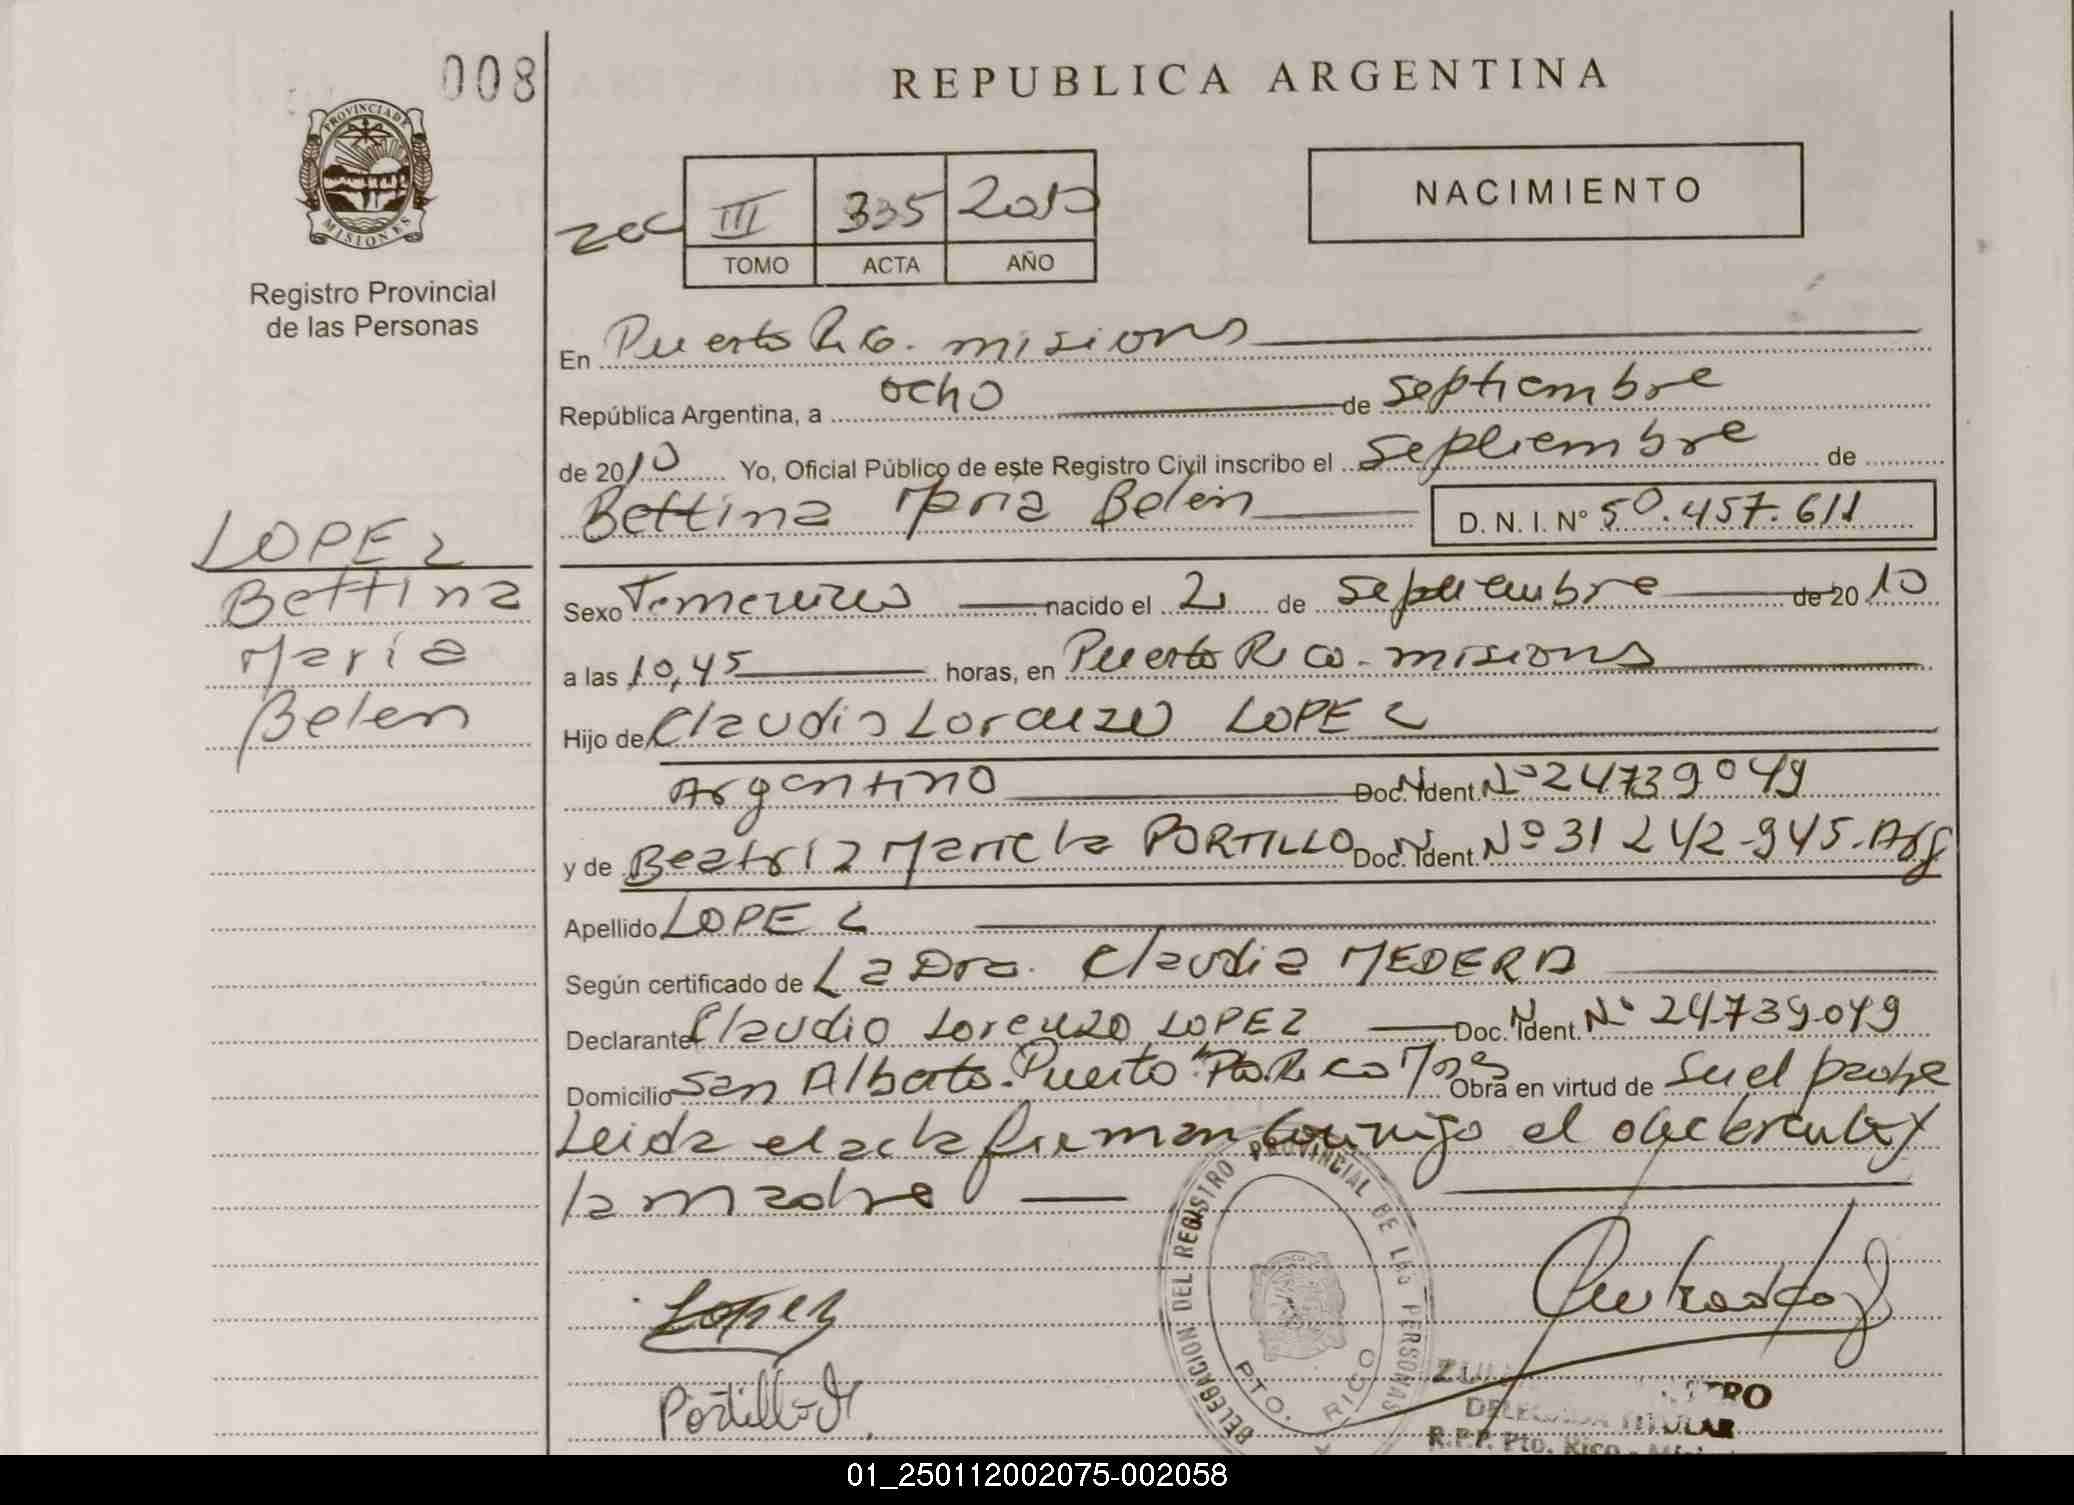 008
REPUBLICA ARGENTINA
PROVINCIA DE
MISIONES
Registro Provincial
de las Personas
III 335 2010
TOMO ACTA AÑO
NACIMIENTO
En Puerto Rico. misiones
República Argentina, a ocho de septiembre
de 2010 Yo, Oficial Público de este Registro Civil inscribo el septiembre de
Bettina Maria Belén D. N. I. N° 50.457.611
LOPEZ
Bettina
María
Belen
Sexo Femenino nacido el 2 de septiembre de 2010
a las 10,45 horas, en Puerto Rico. misiones
Hijo de Claudio Lorenzo LOPEZ
Argentino Doc. Ident. N° 24739049
y de Beatriz Mariela PORTILLO Doc. Ident. N° 31242-945. Arg
Apellido LOPEZ
Según certificado de La Dra. Claudia MEDERA
Declarante Claudio Lorenzo LOPEZ Doc. Ident. N° 24.739.049
Domicilio San Alberto. Puerto Pto. Rico Mnes Obra en virtud de Ser el padre
Leida el acta firman conmigo el declarante y
la madre
Lopez
Portillo
DELEGACION DEL REGISTRO PROVINCIAL DE LAS PERSONAS
PTO. RICO
DELEGADA TITULAR
R.P.P. Pto. Rico
01_250112002075-002058